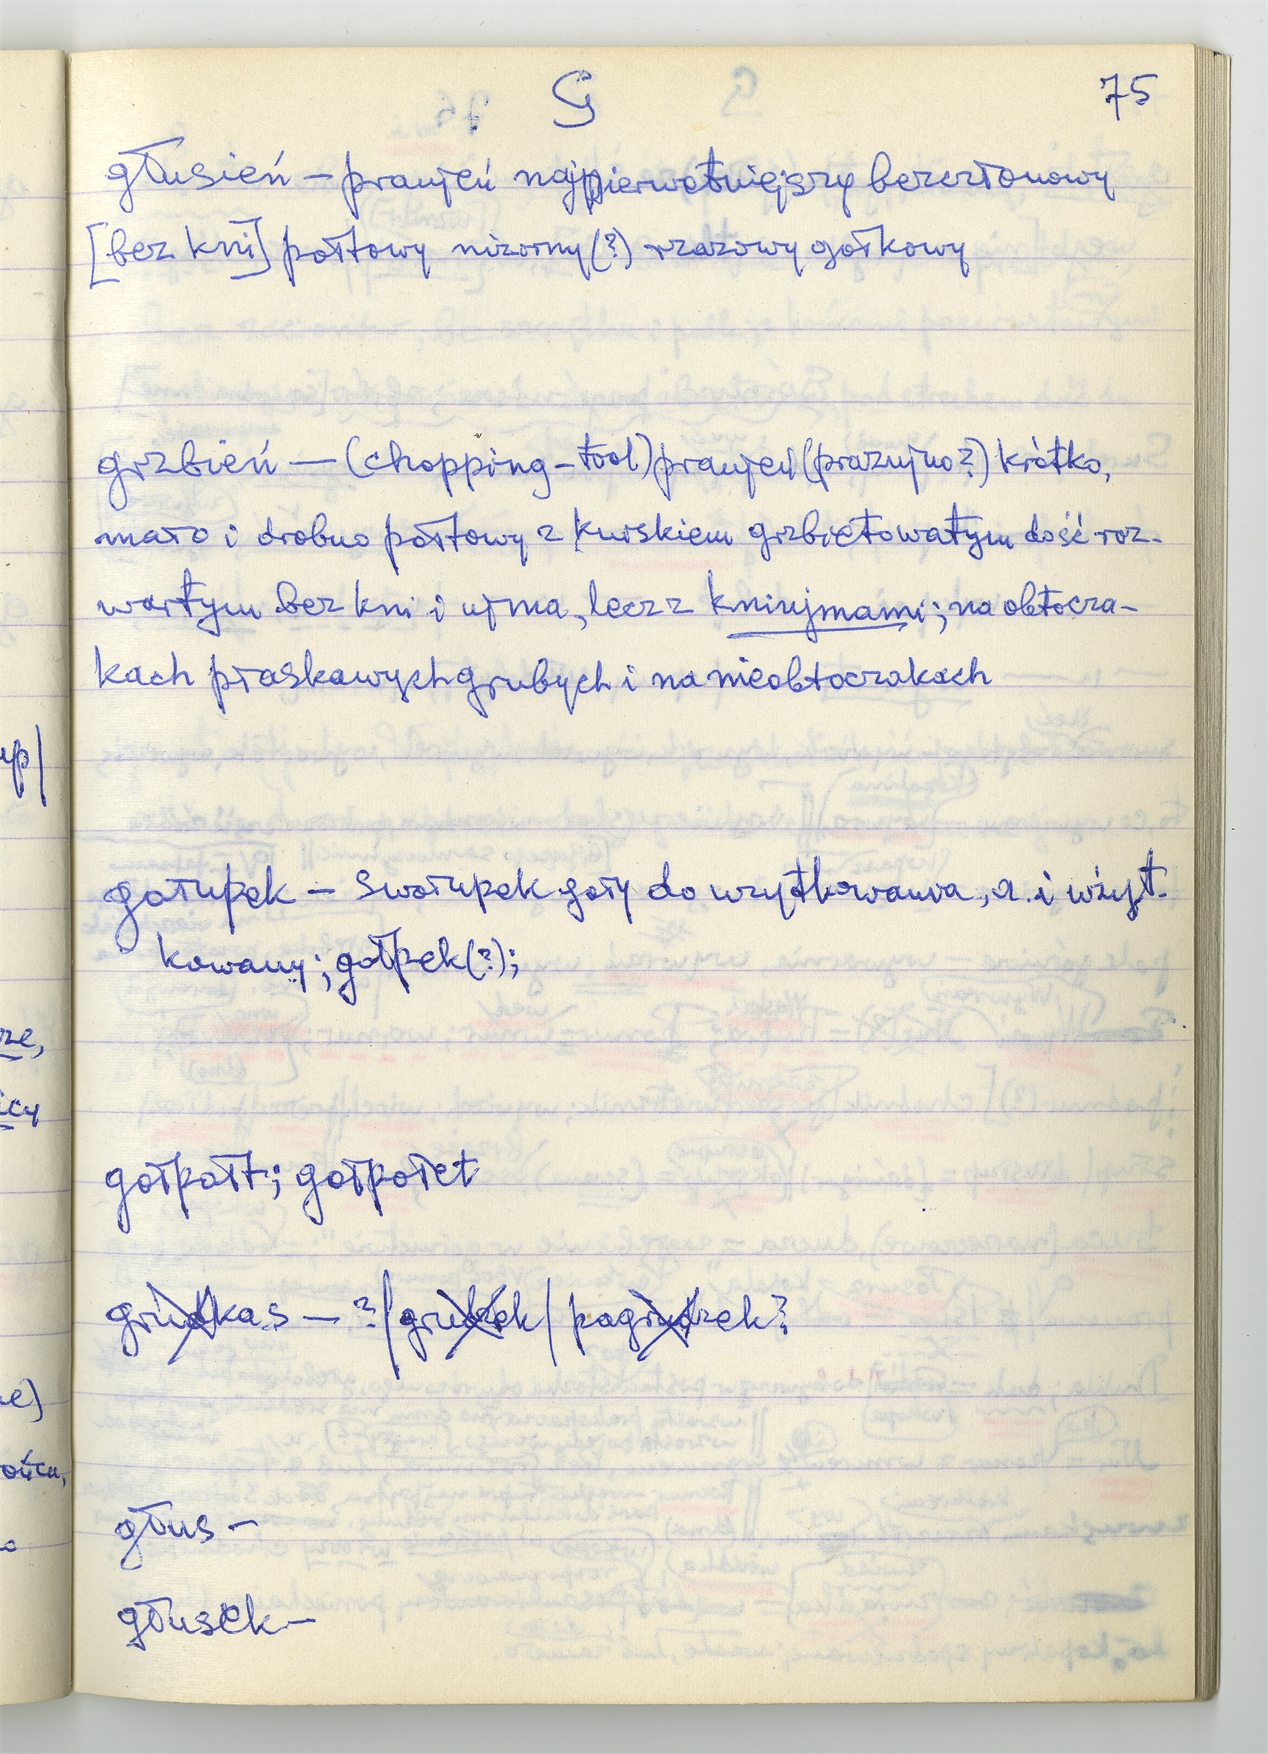 G 75
głusień – praujeń najpierwotniejszy bezczłonowy
[bez kni] połtowy nizorny(?) rzazowy gołkowy
grzbień — (chopping-tool) praujeń (praznujno?) krótko,
mało i drobno połtowy z kurskiem grzbietowatym dość roz-
wartym bez kni i ujma, lecz z kniujmami; na obtocza-
kach płaskawych grubych i na nieobtoczakach
gołupek – swołupek goły do wzytkowania, a i wżyt-
kowany; gołpek(?);
gołpołt; gołpołet
grudkas — ?/grudzek/pagrudzek?
głus –
głusek –
up/
rze,
icy
ie)
ońca,
o